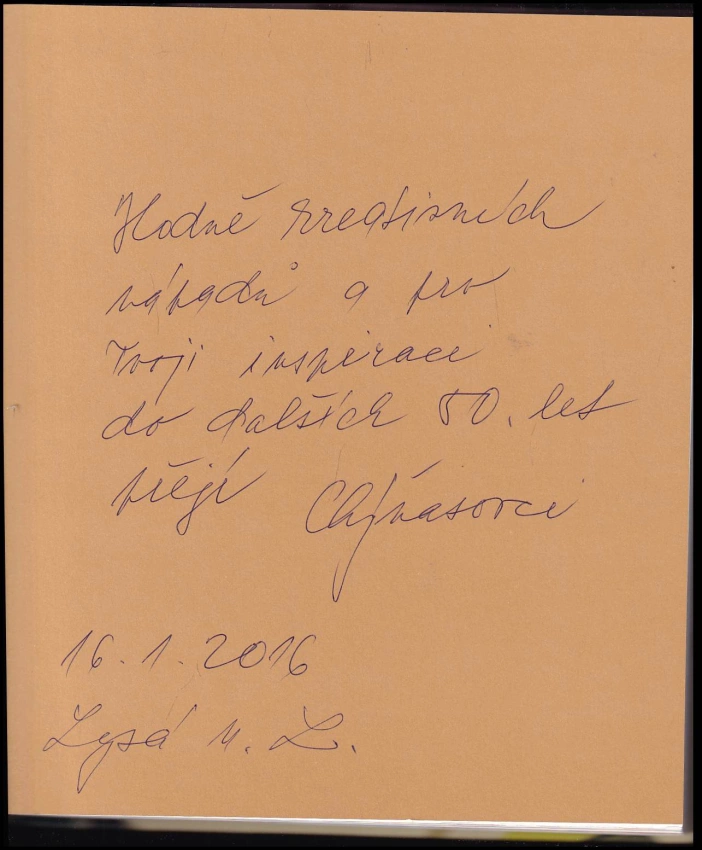 Hodně kreativních
nápadů a pro
Tvoji inspiraci
do dalších 50. let
přejí Chjnásovci
16.1.2016
Lysá n. L.